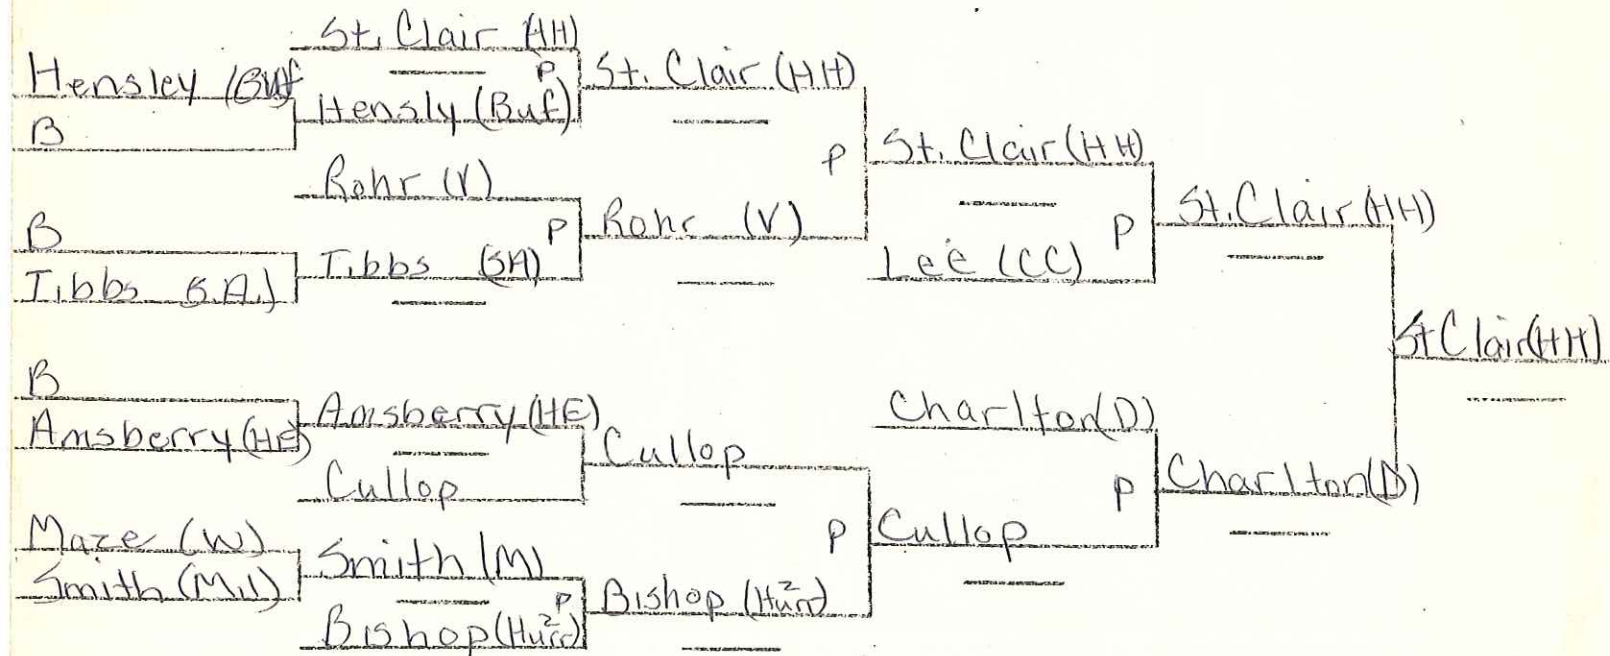 Hensley (Buf
B
B
Tibbs S.A.)
B
Amsberry (HE)
Maze (W)
Smith (Mil)
St. Clair (HH)
P
Hensly (Buf)
Rohr (V)
P
Tibbs (SA)
Amsberry (HE)
Cullop
Smith (M)
P
Bishop (Hurr)
St. Clair (HH)
P
Rohr (V)
Cullop
P
Bishop (Hurr)
St. Clair (HH)
P
Lee (CC)
Charlton (D)
P
Cullop
St. Clair (HH)
Charlton (D)
St Clair (HH)